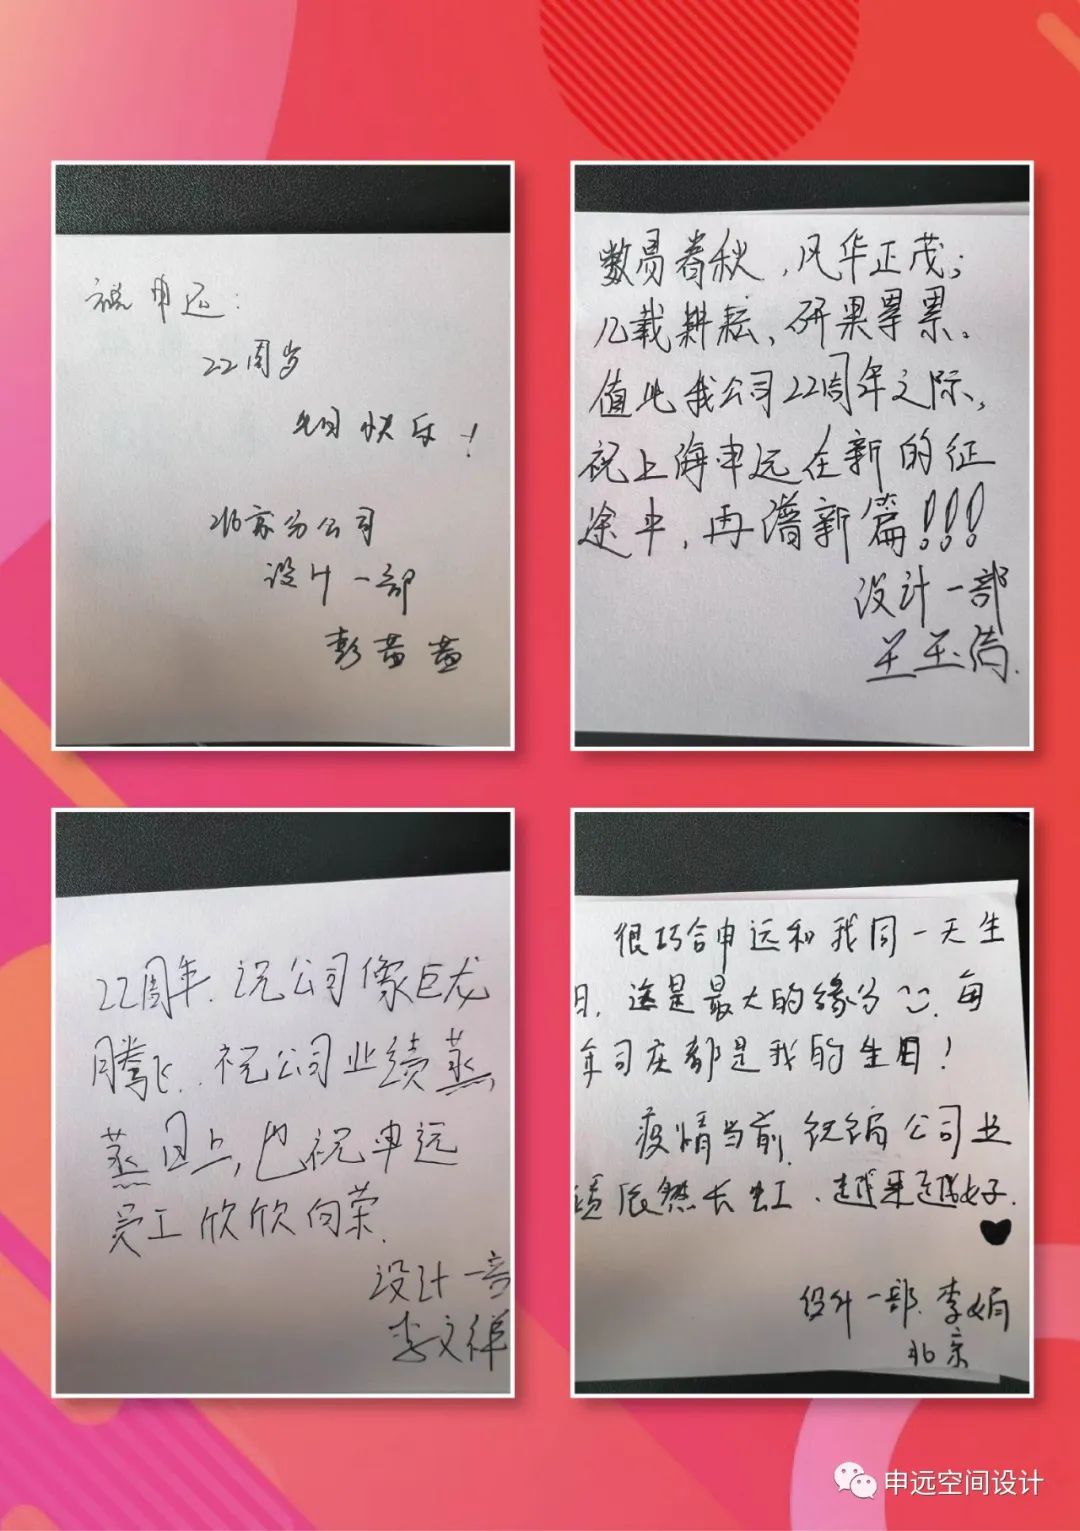 祝申远：
22周岁
生日快乐！
北京分公司
设计一部
彭苗苗
数易春秋，风华正茂；
几载耕耘，研果累累。
值此我公司22周年之际，
祝上海申远在新的征
途中，再谱新篇！！！
设计一部
王玉
22周年.祝公司像巨龙
腾飞..祝公司业绩蒸
蒸日上，也祝申远
员工欣欣向荣.
设计一部
李文祥
很巧合申远和我同一天生
日，这是最大的缘分.每
年司庆都是我的生日！
疫情当前.祝福公司业
绩依然长虹、越来越好.
设计一部.李娟
北京
申远空间设计